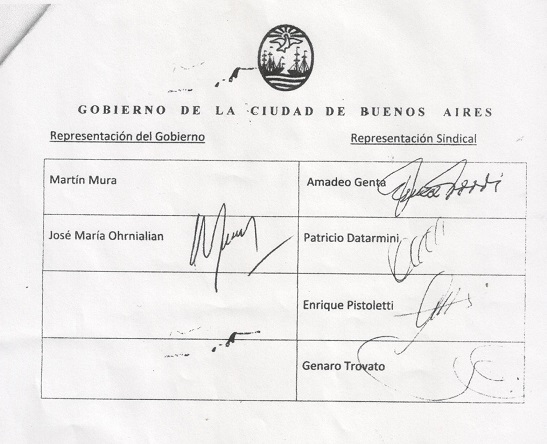 GOBIERNO DE LA CIUDAD DE BUENOS AIRES
Representación del Gobierno
Representación Sindical
Martín Mura
Amadeo Genta
José María Ohrnialian
Patricio Datarmini
Enrique Pistoletti
Genaro Trovato